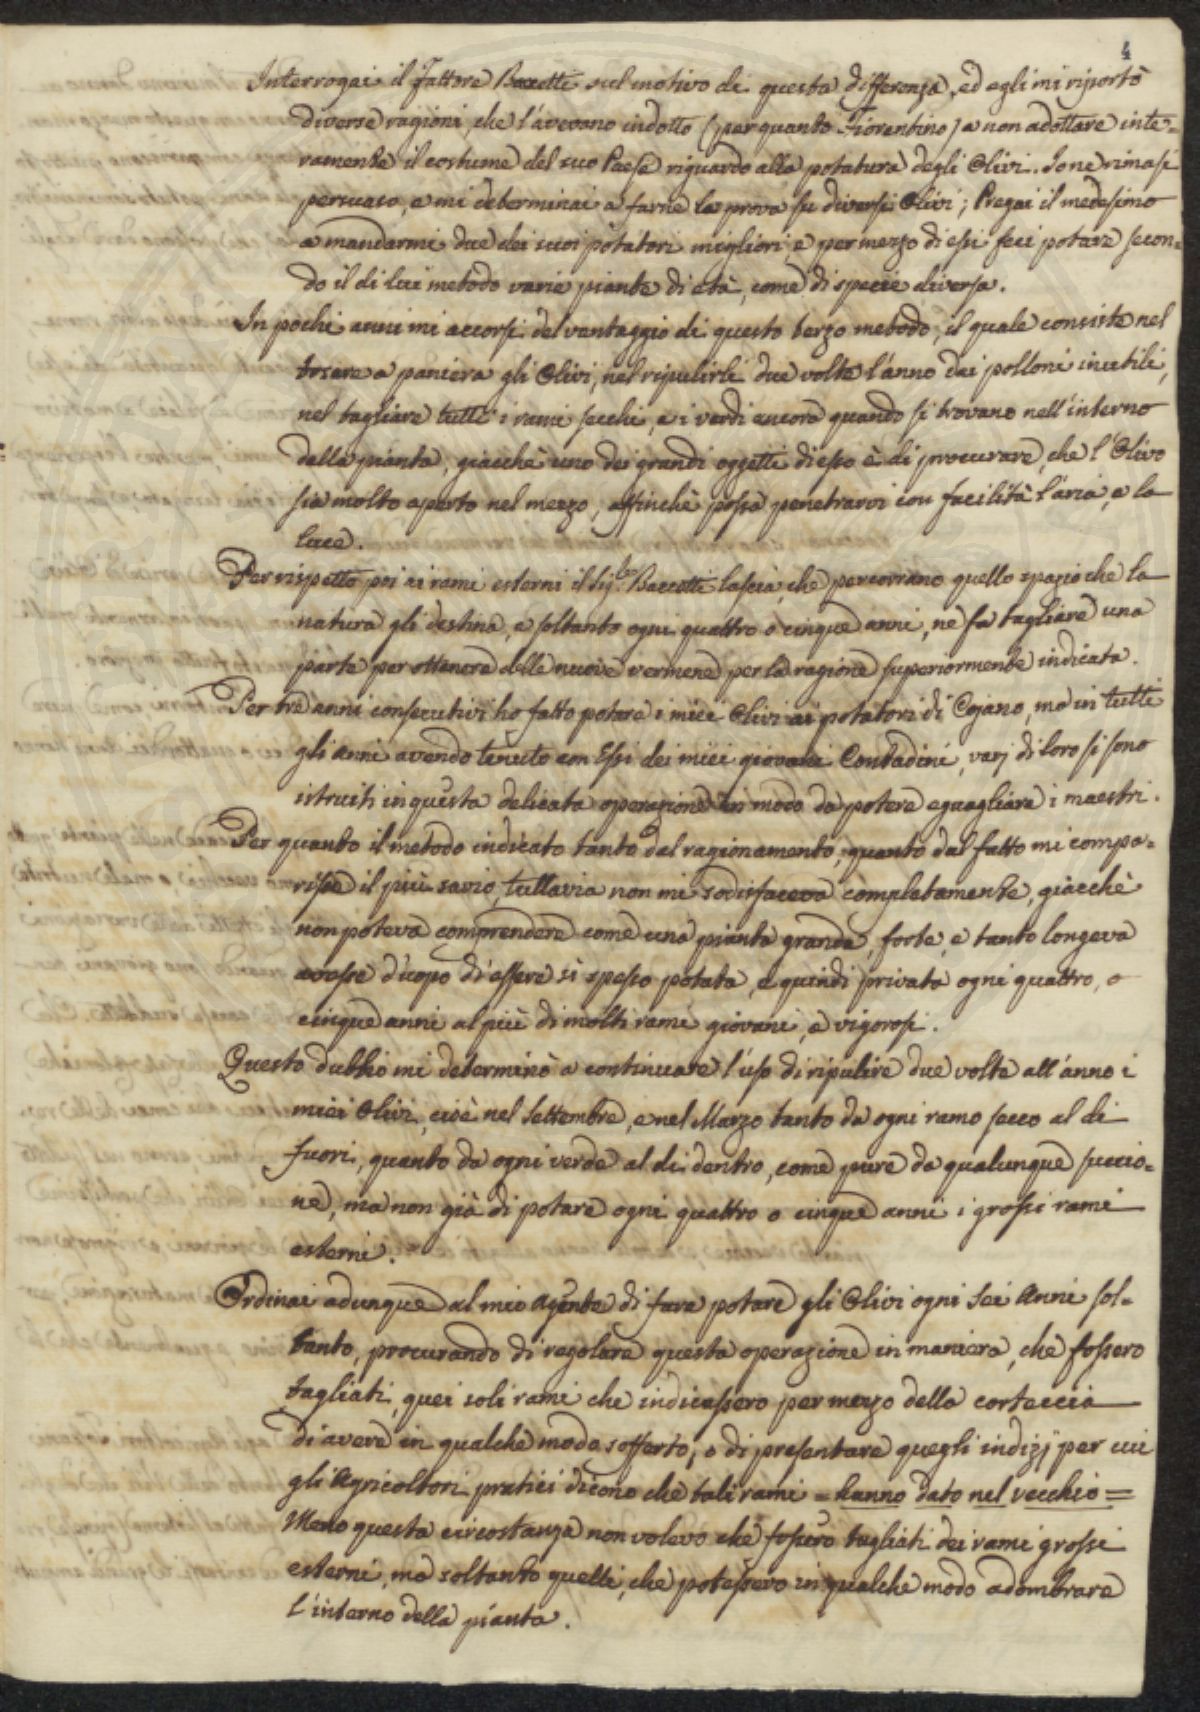 4
Interrogai il Fattore Baccetti sul motivo di questa differenza, ed egli mi riportò
diverse ragioni, che l'avevano indotto (per quanto Fiorentino) a non adottare inte=
ramente il costume del suo Paese riguardo alla potatura degli Olivi. Io ne rimasi
persuaso, e mi determinai a farne la prova su diversi Olivi; Pregai il medesimo
a mandarmi due dei suoi potatori migliori e per mezzo di essi feci potare secon=
do il di lui metodo varie piante di età, come di specie diversa.
In pochi anni mi accorsi del vantaggio di questo terzo metodo, il quale consiste nel
tosare a paniera gli Olivi, nel ripulirli due volte l'anno dai polloni inutili,
nel tagliare tutti i rami secchi, e i verdi ancora quando si trovano nell'interno
della pianta, giacchè uno dei grandi oggetti di esso è di procurare, che l'Olivo
sia molto aperto nel mezzo, affinchè possa penetrarvi con facilità l'aria, e la
luce.
Per rispetto poi ai rami esterni il Sig.re Baccetti lascia, che percorrano quello spazio che la
natura gli destina, e soltanto ogni quattro o cinque anni, ne fa tagliare una
parte per ottenere delle nuove vermene per la ragione superiormente indicata.
Per tre anni consecutivi ho fatto potare i miei Olivi ai potatori di Cojano, ma in tutti
gli anni avendo tenuto con Essi dei miei giovani Contadini, varj di loro si sono
istruiti in questa delicata operazione in modo da potere eguagliare i maestri.
Per quanto il metodo indicato tanto dal ragionamento, quanto dal fatto mi compa=
risse il più savio, tuttavia non mi sodisfaceva completamente, giacchè
non poteva comprendere come una pianta grande, forte, e tanto longeva
avesse d'uopo di essere sì spesso potata, e quindi privata ogni quattro, o
cinque anni al più di molti rami giovani, e vigorosi.
Questo dubbio mi determinò a continuare l'uso di ripulire due volte all'anno i
miei Olivi, cioè nel Settembre, e nel Marzo tanto da ogni ramo secco al di
fuori, quanto da ogni verde al di dentro, come pure da qualunque succio=
ne, ma non già di potare ogni quattro o cinque anni i grossi rami
esterni.
Ordinai adunque al mio Agente di fare potare gli Olivi ogni sei Anni sol=
tanto, procurando di regolare questa operazione in maniera, che fossero
tagliati quei soli rami che indicassero per mezzo della corteccia
di avere in qualche modo sofferto, o di presentare quegli indizj per cui
gli Agricoltori pratici dicono che tali rami = hanno dato nel vecchio =
Meno questa circostanza non volevo che fossero tagliati dei rami grossi
esterni, ma soltanto quelli, che potessero in qualche modo adombrare
l'interno della pianta.